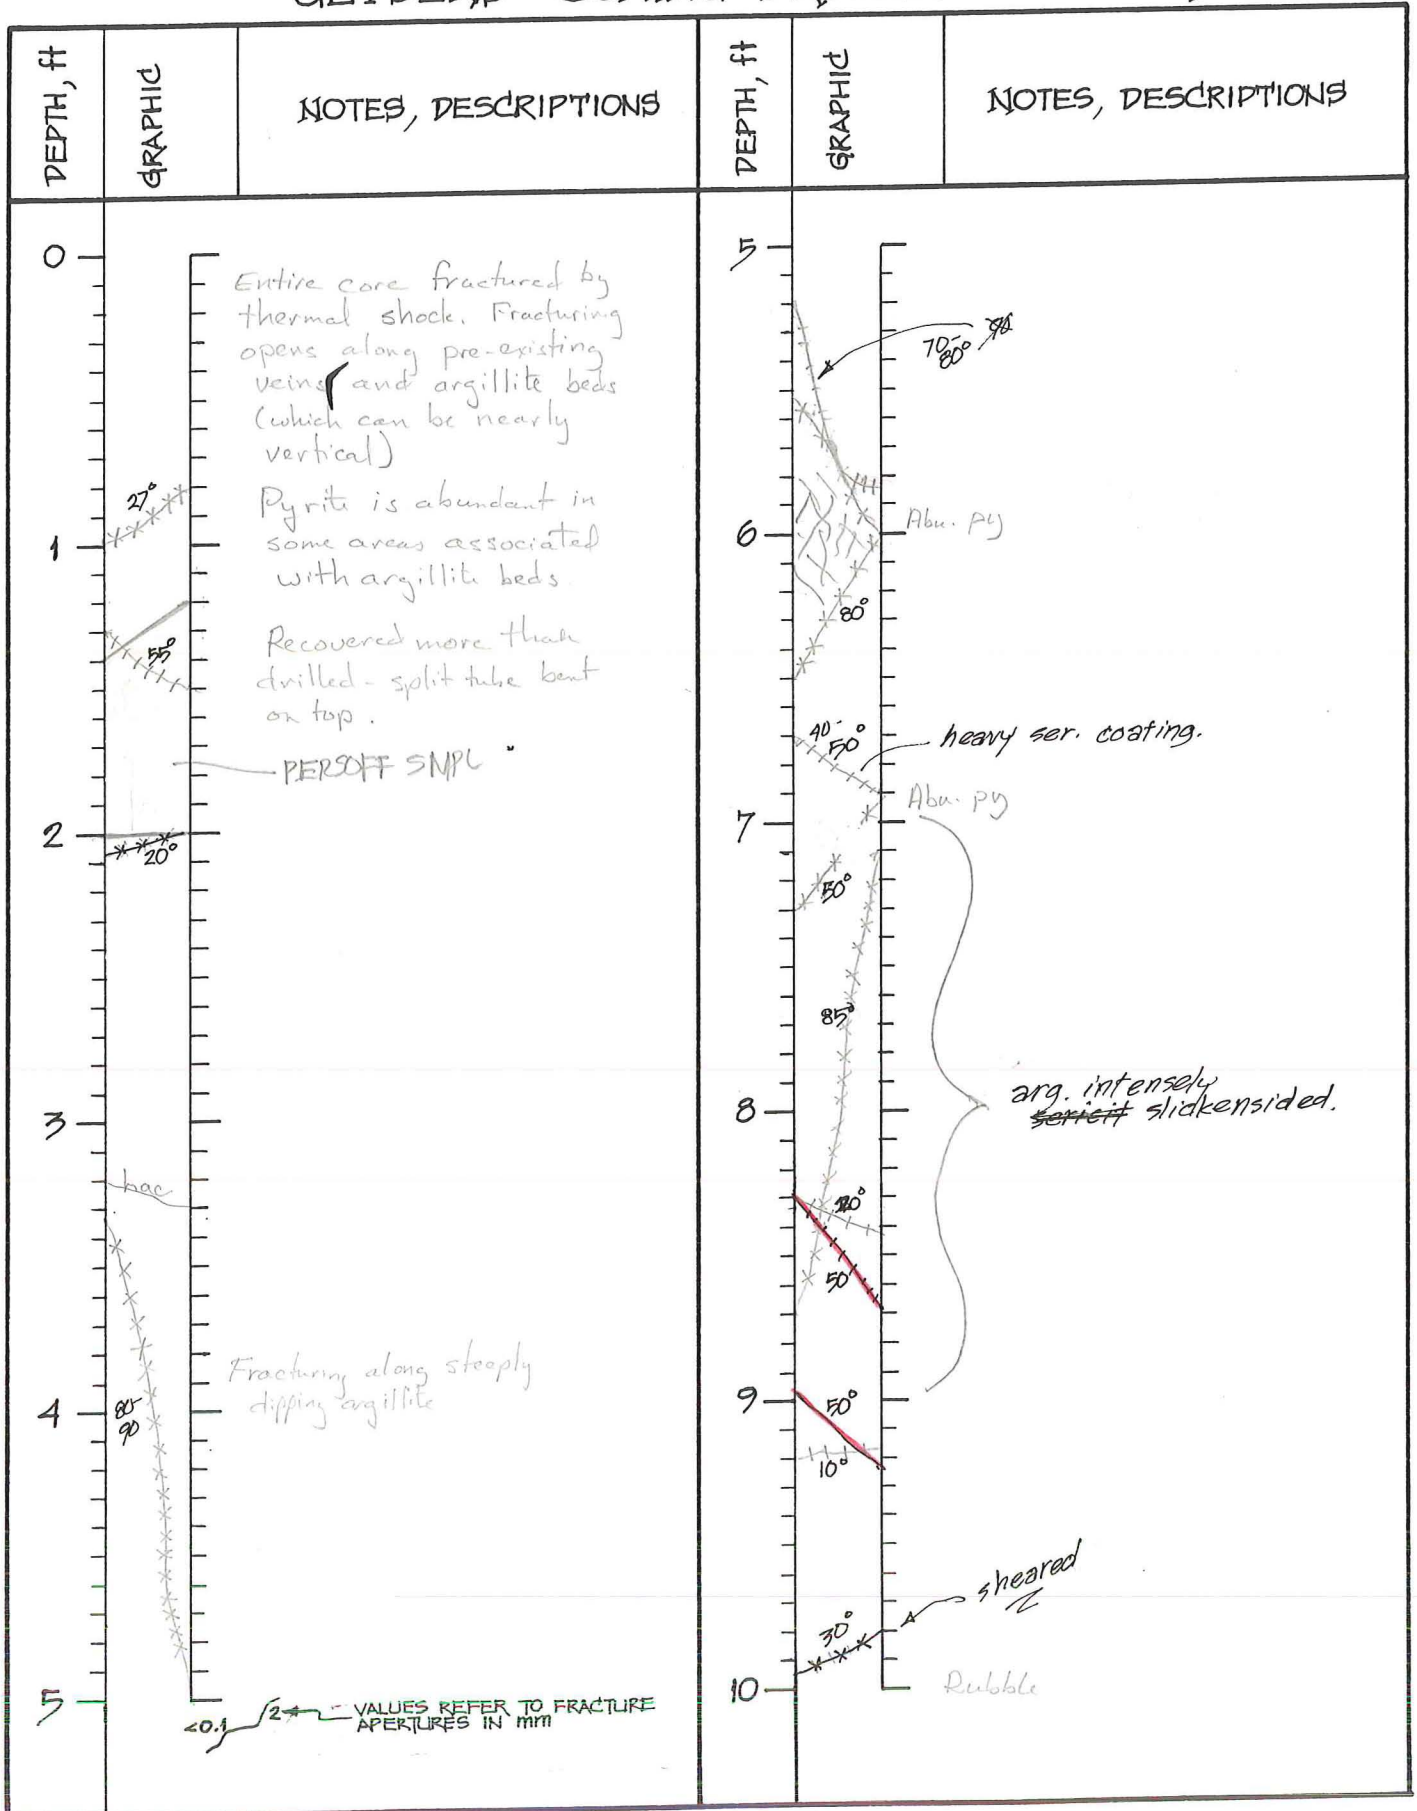 DEPTH, ft
GRAPHIC
NOTES, DESCRIPTIONS
0
Entire core fractured by
thermal shock. Fracturing
opens along pre-existing
veins and argillite beds
(which can be nearly
vertical)
27°
Pyrite is abundant in
1
some areas associated
with argillite beds
Recovered more than
55°
drilled - split tube bent
on top.
PERSOFF SMPL
2
20°
3
hac
Fracturing along steeply
dipping argillite
4
80-
90
5
<0.1
2
VALUES REFER TO FRACTURE
APERTURES IN mm
DEPTH, ft
GRAPHIC
NOTES, DESCRIPTIONS
5
70-
80°
6
Abu. py
80°
40-
50°
heavy ser. coating.
Abu. py
7
50°
85°
arg. intensely
8
sericit slickensided.
50
9
50°
10°
sheared
30°
10
Rubble